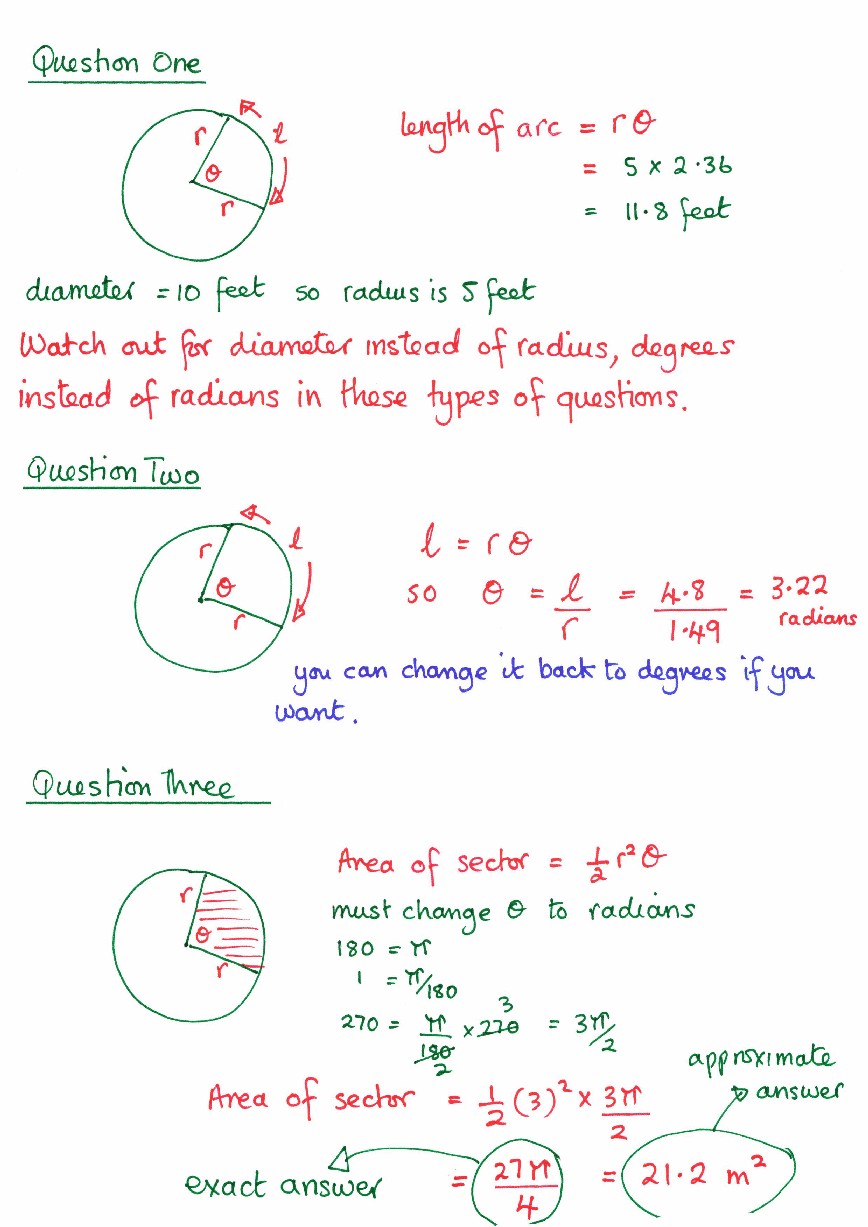 Question One
r
l
θ
r
length of arc = rθ
= 5 x 2.36
= 11.8 feet
diameter = 10 feet so radius is 5 feet
Watch out for diameter instead of radius, degrees
instead of radians in these types of questions.
Question Two
r
l
θ
r
l = rθ
so θ = l/r = 4.8/1.49 = 3.22
radians
you can change it back to degrees if you
want.
Question Three
r
θ
r
Area of sector = 1/2 r²θ
must change θ to radians
180 = π
1 = π/180
270 = π/180 x 270 = 3π/2
3
2
Area of sector = 1/2 (3)² x 3π/2
approximate
answer
exact answer = 27π/4 = 21.2 m²